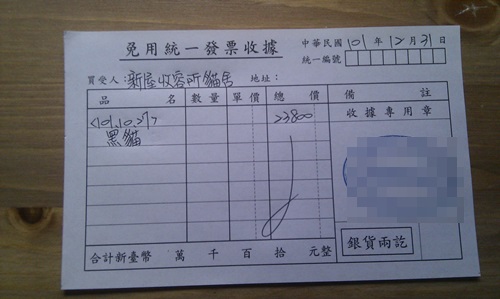 免用統一發票收據
中華民國101年12月31日
統一編號
買受人：新屋收容所貓舍 地址：
品名 數量 單價 總價 備註
<101.10.27> 23800 收據專用章
黑貓
銀貨兩訖
合計新臺幣 萬 千 百 拾 元整